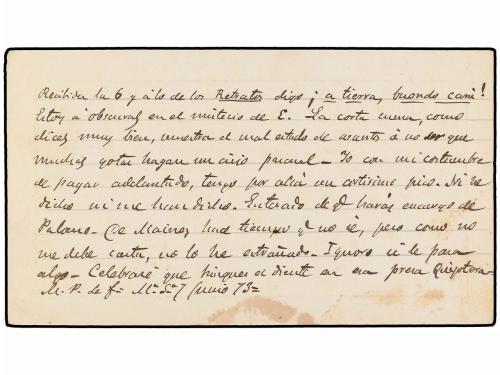 Recibida la 6 y á lo de los Retratos digo ¡a tierra, buondo cani!
Estoy á obscuras en el misterio de E. La corta cuna, como
dices muy bien, muestra el mal estado de asunto á no ser que
muchas gotas hagan un cirio pascual - Yo con mi costumbre
de pagar adelantado, tengo por allá un cortisimo pico. Ni he
dicho ni me han dicho. Enterado de q. harás encargo de
Palano - De Mainez hace tiempo q. no sé, pero como no
me debe carta, no lo he extrañado. Ignoro si le pasa
algo - Celebraré que hinques el diente en esa presa Quijotesca
M. P. de f. M. 7 Junio 73 =